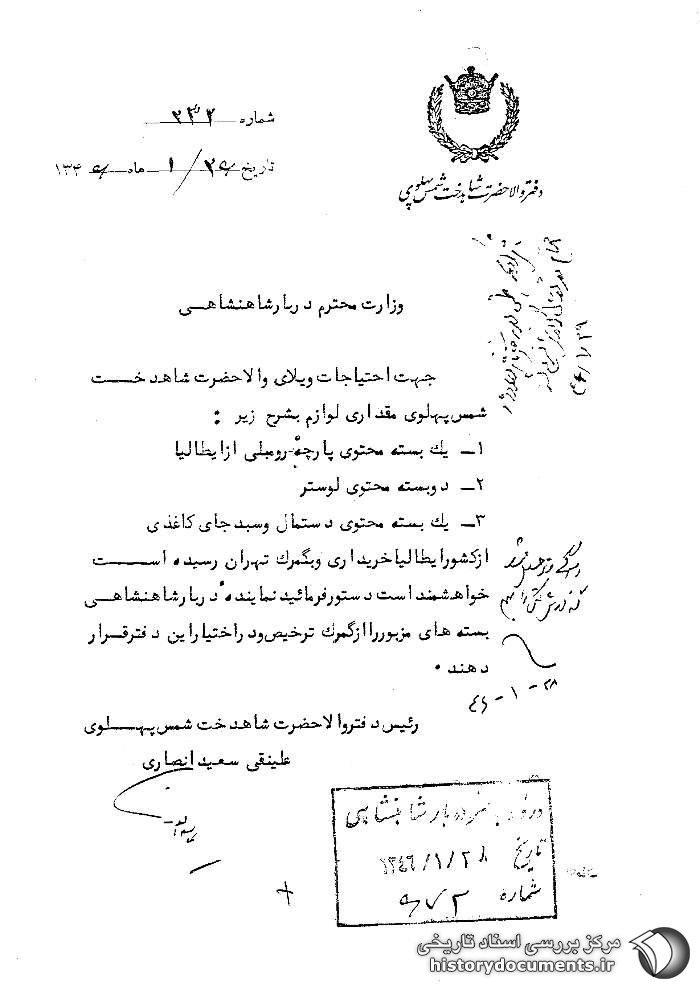 دفتر والاحضرت شاهدخت شمس پهلوی
شماره ۲۳۲
تاریخ ۲۶/ ۱ ماه ۱۳۴۶
وزارت محترم دربار شاهنشاهی
جهت احتیاجات ویلای والاحضرت شاهدخت
شمس پهلوی مقداری لوازم بشرح زیر :
۱ـ یک بسته محتوی پارچه رومبلی از ایطالیا
۲ـ دو بسته محتوی لوستر
۳ـ یک بسته محتوی دستمال وسبد جای کاغذی
از کشور ایطالیا خریداری و بگمرک تهران رسیده است
خواهشمند است دستور فرمائید نماینده دربار شاهنشاهی
بسته های مزبور را از گمرک ترخیص ودراختیار این دفتر قرار
دهند .
۲۸ - ۱ - ۴۶
رئیس دفتر والاحضرت شاهدخت شمس پهلوی
علینقی سعید انصاری
دربار شاهنشاهی
تاریخ ۱۳۴۶/۱/۲۸
شماره ۶۷۲
مرکز بررسی اسناد تاریخی
historydocuments.ir